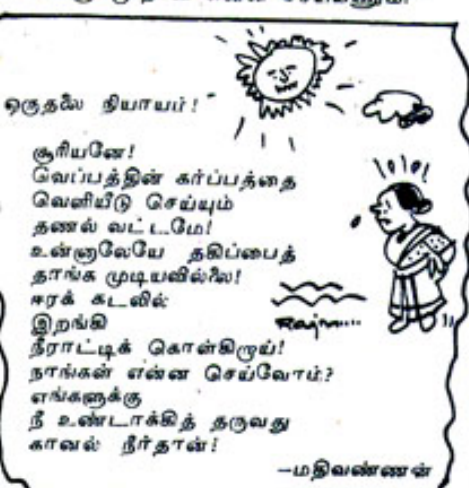 ஒருதலை நியாயம்!
சூரியனே!
வெப்பத்தின் கர்ப்பத்தை
வெளியீடு செய்யும்
தணல் வட்டமே!
உன்னாலேயே தகிப்பைத்
தாங்க முடியவில்லை!
ஈரக் கடலில்
இறங்கி
நீராட்டிக் கொள்கிறாய்!
நாங்கள் என்ன செய்வோம்?
எங்களுக்கு
நீ உண்டாக்கித் தருவது
கானல் நீர்தான்!
—மதிவண்ணன்